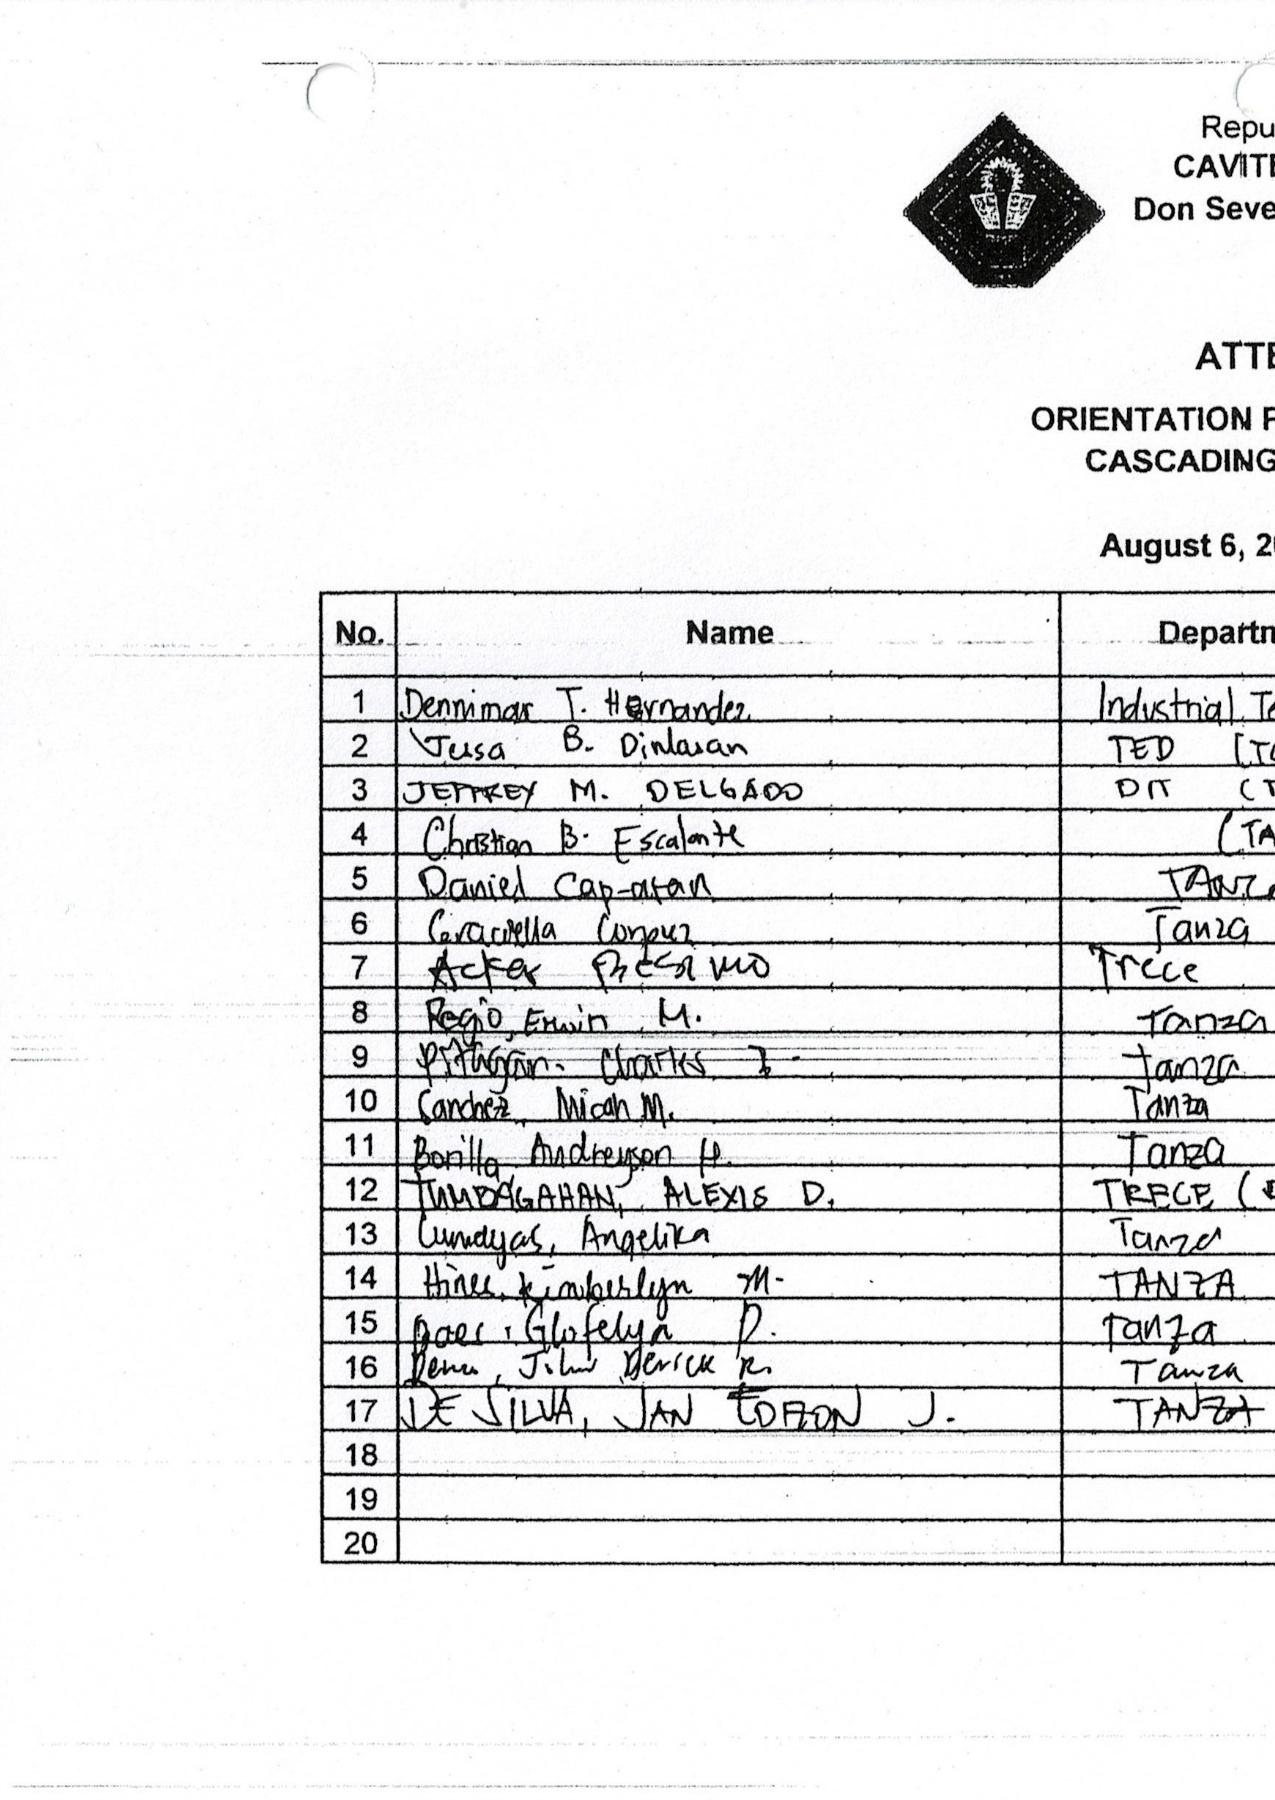 Repu
CAVITE
Don Seve
ATTE
ORIENTATION P
CASCADING
August 6, 2
No. Name Departm
1 Dennimar T. Hernandez Industrial Te
2 B. Dinlasan TED
3 JEFFREY M. DELGADO DIT
4 Christian B. Escalante (TA
5 Daniel Cap-atan TANZA
6 Graciella Corpuz Tanza
7 Acker Trece
8 Regio, Erwin M. Tanza
9 Charles Tanza
10 Sanchez, Micah M. Tanza
11 Bonilla, Andreyson H. Tanza
12 TUMDAGAHAN, ALEXIS D. TRECE (
13 Angelika Tanza
14 Kimberlyn M. TANZA
15 Glofelyn P. Tanza
16 Derick R. Tanza
17 DE SILVA, JAN J. TANZA
18
19
20